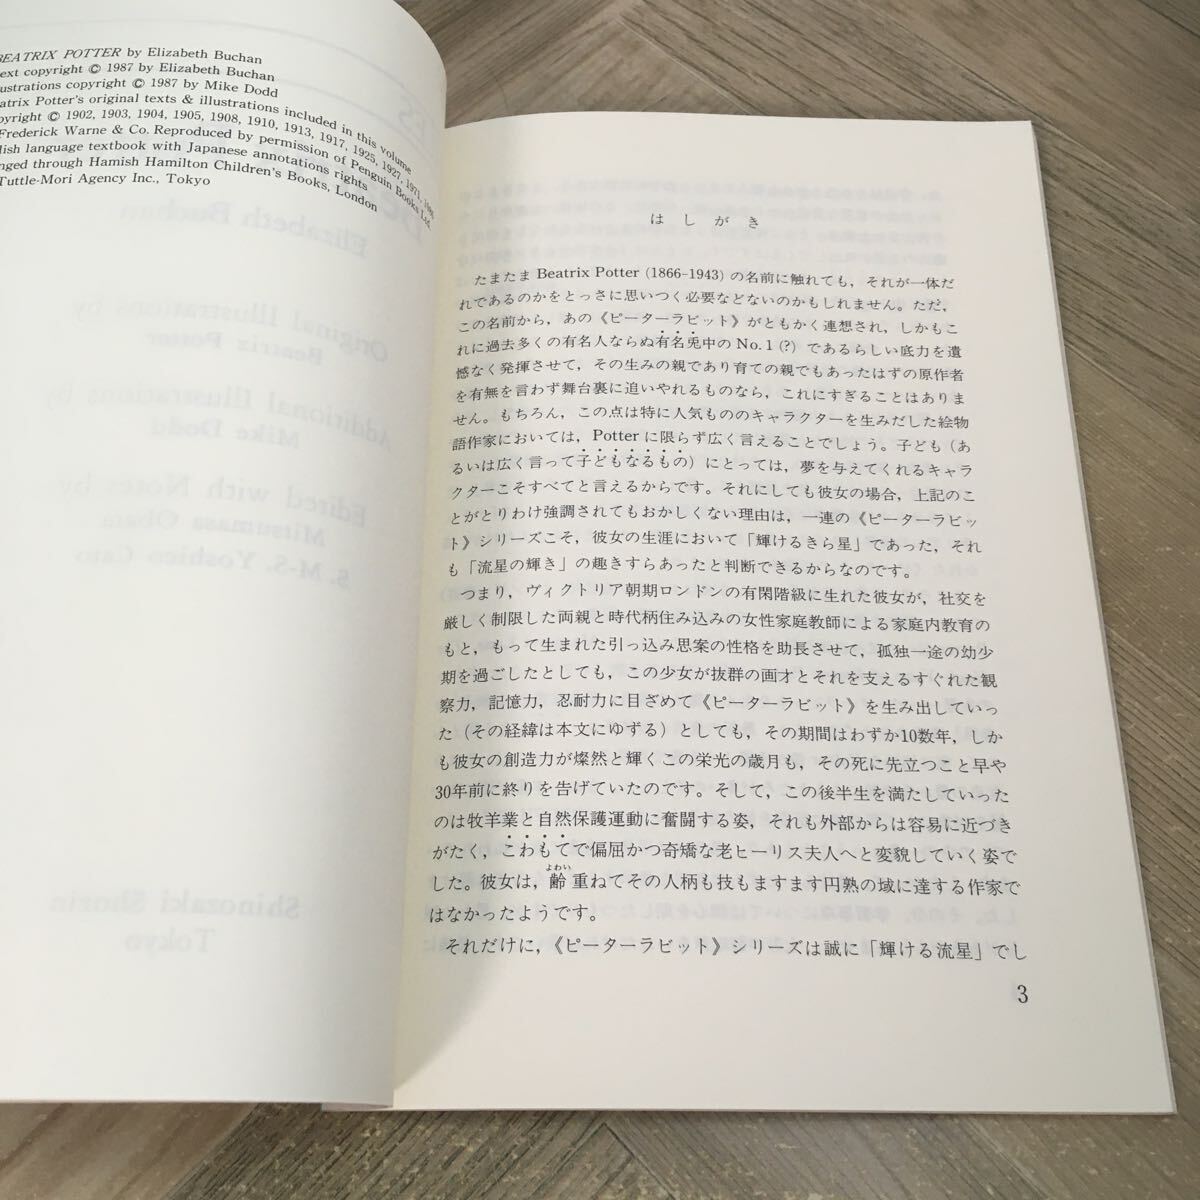 BEATRIX POTTER by Elizabeth Buchan
ext copyright © 1987 by Elizabeth Buchan
ustrations copyright © 1987 by Mike Dodd
atrix Potter's original texts & illustrations included in this volume
pyright © 1902, 1903, 1904, 1905, 1908, 1910, 1913, 1917, 1925, 1927, 1971, 1986
Frederick Warne & Co. Reproduced by permission of Penguin Books Ltd.
lish language textbook with Japanese annotations rights
nged through Hamish Hamilton Children's Books, London
Tuttle-Mori Agency Inc., Tokyo
Elizabeth Buchan
Original Illustrations by
Beatrix Potter
Additional Illustrations by
Mike Dodd
Edited with Notes by
Mitsumasa Obam
S. M-S. Yoshico Cato
Shinozaki Shorin
Tokyo
はしがき
たまたま Beatrix Potter (1866-1943) の名前に触れても，それが一体だ
れであるのかをとっさに思いつく必要などないのかもしれません。ただ，
この名前から，あの《ピーターラビット》がともかく連想され，しかもこ
れに過去多くの有名人ならぬ有名兎中の No. 1 (?) であるらしい底力を遺
憾なく発揮させて，その生みの親であり育ての親でもあったはずの原作者
を有無を言わず舞台裏に追いやれるものなら，これにすぎることはありま
せん。もちろん，この点は特に人気もののキャラクターを生みだした絵物
語作家においては，Potter に限らず広く言えることでしょう。子ども（あ
るいは広く言って子どもなるもの）にとっては，夢を与えてくれるキャラ
クターこそすべてと言えるからです。それにしても彼女の場合，上記のこ
とがとりわけ強調されてもおかしくない理由は，一連の《ピーターラビッ
ト》シリーズこそ，彼女の生涯において「輝けるきら星」であった，それ
も「流星の輝き」の趣きすらあったと判断できるからなのです。
つまり，ヴィクトリア朝期ロンドンの有閑階級に生れた彼女が，社交を
厳しく制限した両親と時代柄住み込みの女性家庭教師による家庭内教育の
もと，もって生まれた引っ込み思案の性格を助長させて，孤独一途の幼少
期を過ごしたとしても，この少女が抜群の画才とそれを支えるすぐれた観
察力，記憶力，忍耐力に目ざめて《ピーターラビット》を生み出していっ
た（その経緯は本文にゆずる）としても，その期間はわずか10数年，しか
も彼女の創造力が燦然と輝くこの栄光の歳月も，その死に先立つこと早や
30年前に終りを告げていたのです。そして，この後半生を満たしていった
のは牧羊業と自然保護運動に奮闘する姿，それも外部からは容易に近づき
がたく，こわもてで偏屈かつ奇矯な老ヒーリス夫人へと変貌していく姿で
した。彼女は，齢よわい重ねてその人柄も技もますます円熟の域に達する作家で
はなかったようです。
それだけに，《ピーターラビット》シリーズは誠に「輝ける流星」でし
3